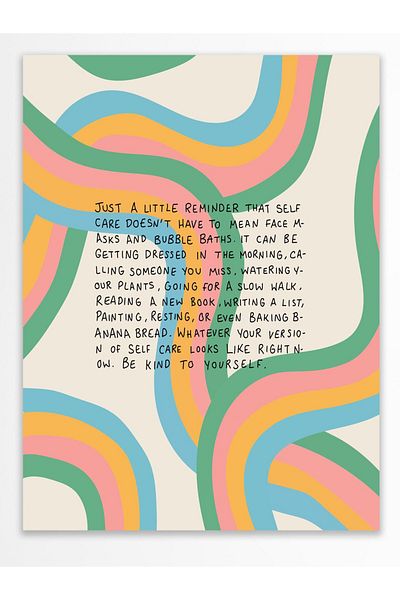 JUST A LITTLE REMINDER THAT SELF
CARE DOESN'T HAVE TO MEAN FACE M-
ASKS AND BUBBLE BATHS. IT CAN BE
GETTING DRESSED IN THE MORNING, CA-
LLING SOMEONE YOU MISS, WATERING Y-
OUR PLANTS, GOING FOR A SLOW WALK,
READING A NEW BOOK, WRITING A LIST,
PAINTING, RESTING, OR EVEN BAKING B-
ANANA BREAD. WHATEVER YOUR VERSIO-
N OF SELF CARE LOOKS LIKE RIGHT N-
OW. BE KIND TO YOURSELF.